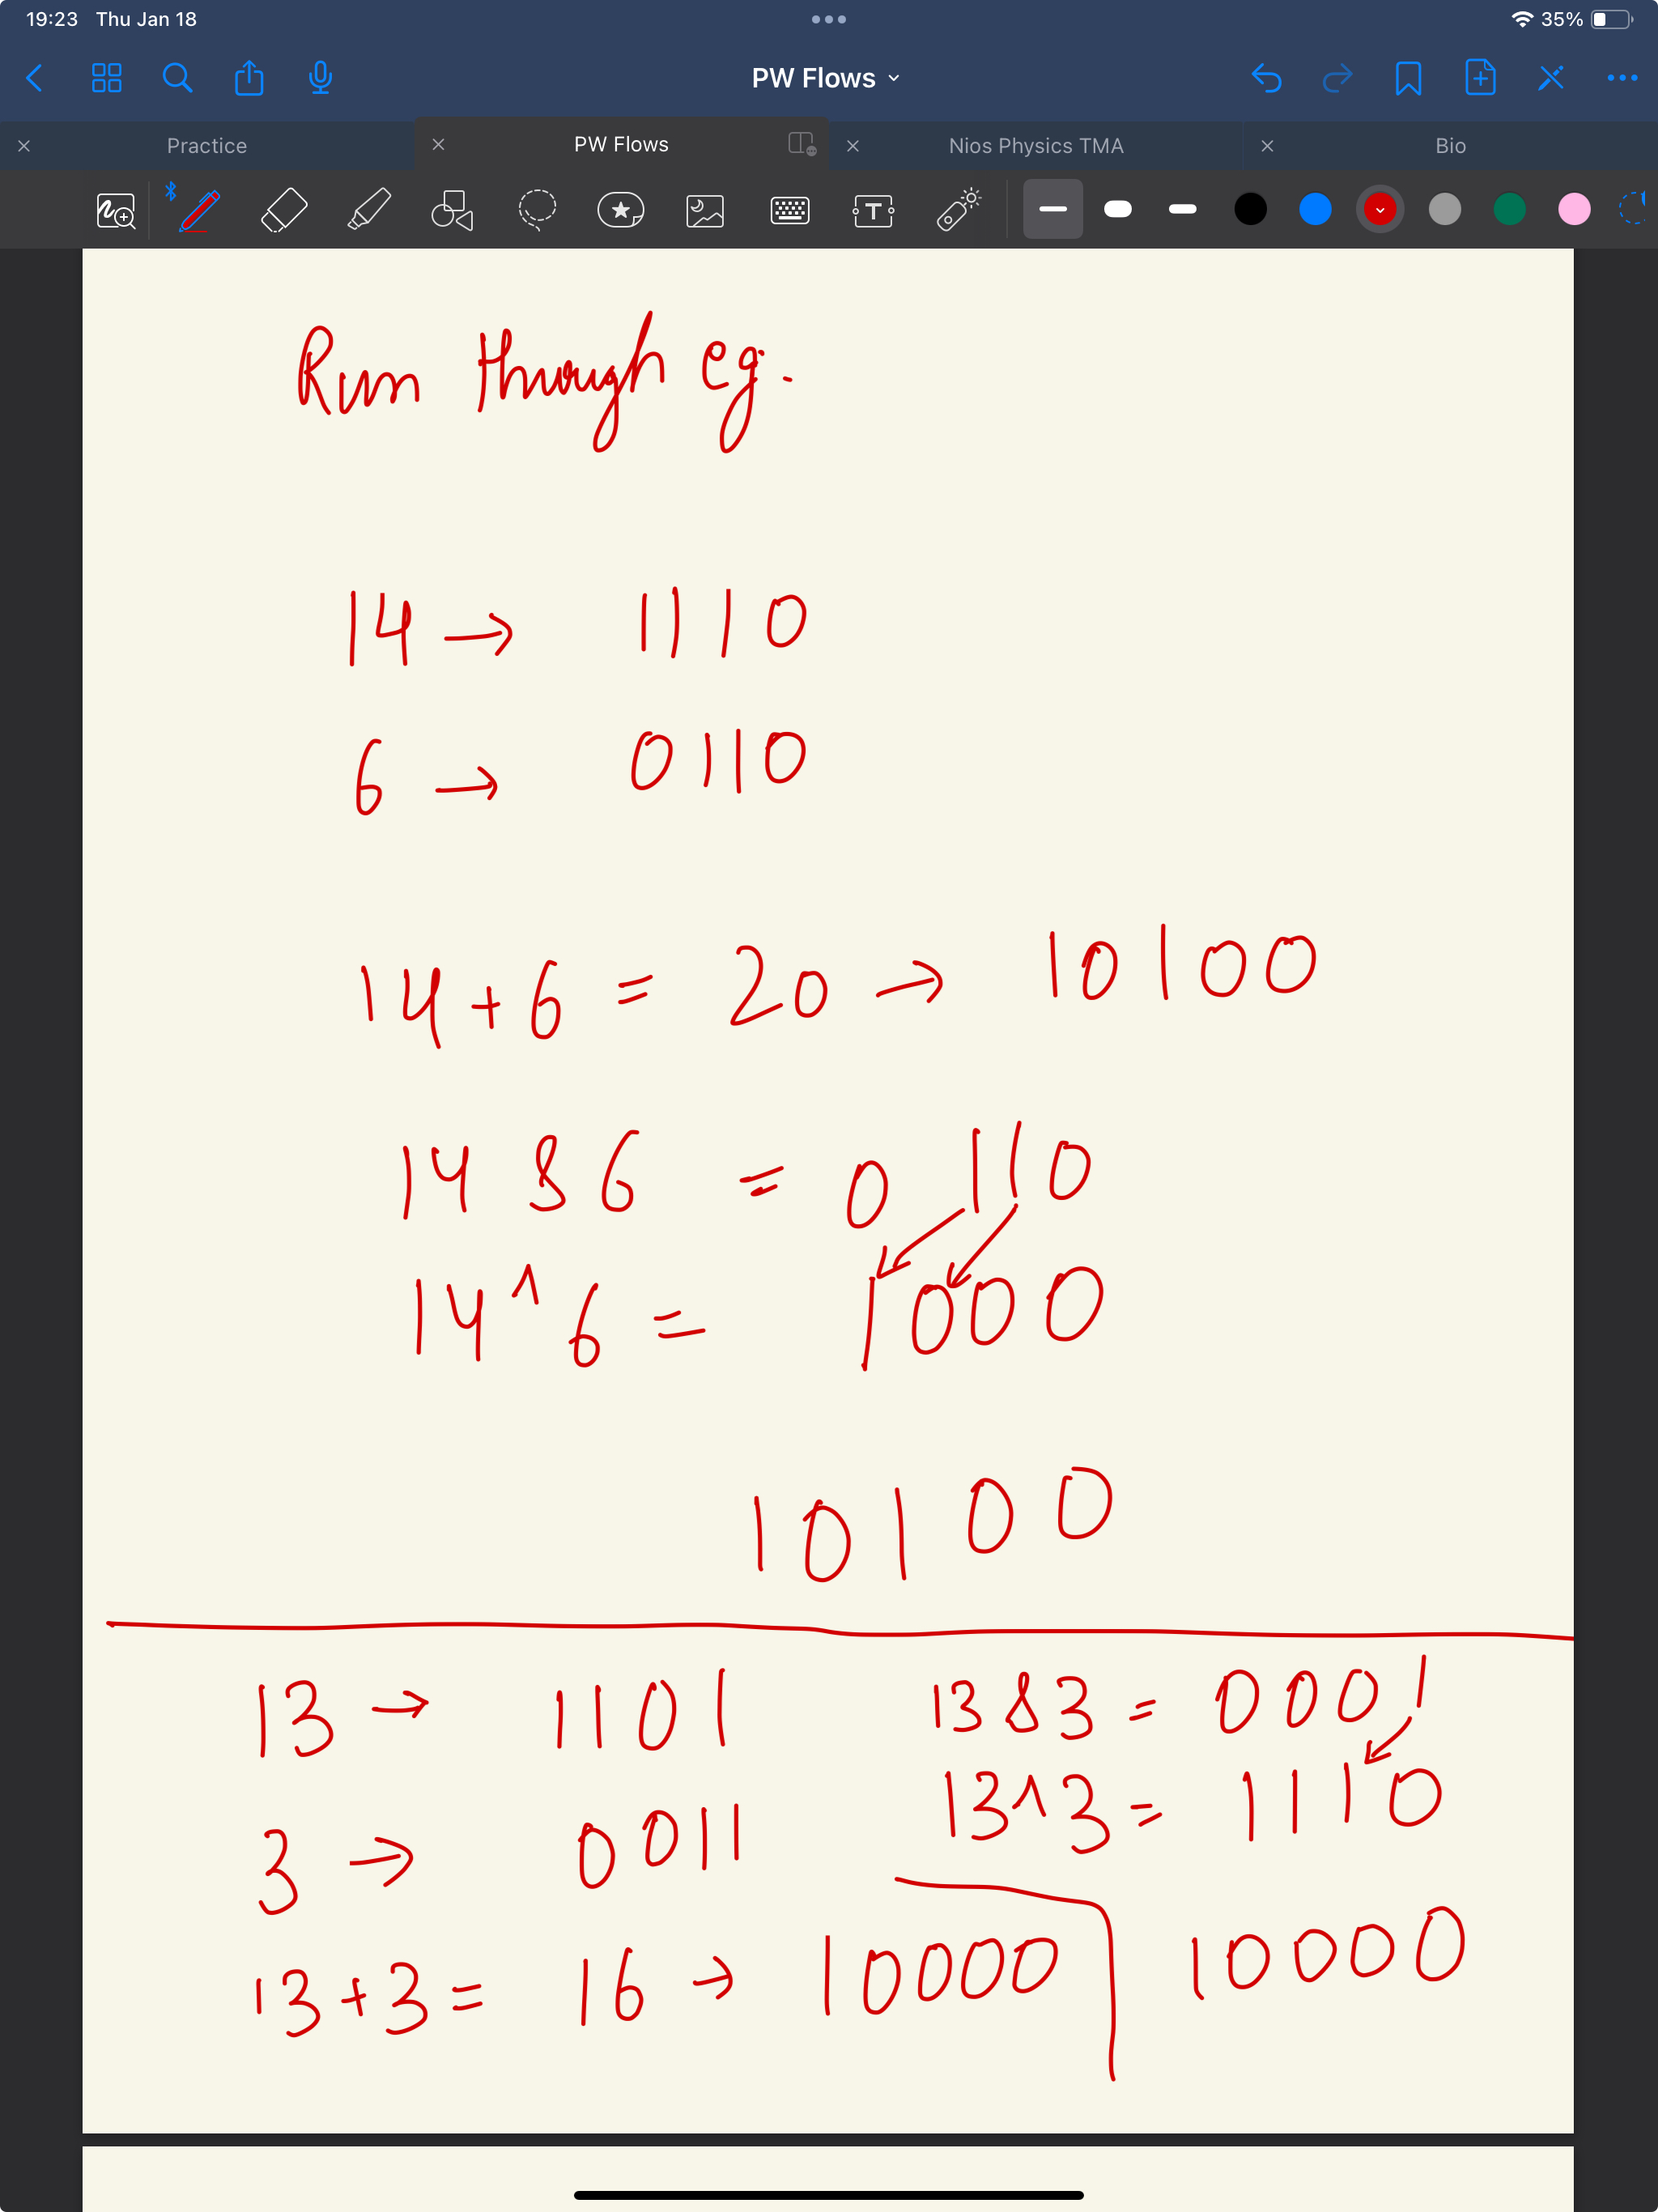 19:23 Thu Jan 18 35%
PW Flows
Practice PW Flows Nios Physics TMA Bio
T
Run through eg.
14 → 1110
6 → 0110
14 + 6 = 20 → 10100
14 & 6 = 0110
14 ^ 6 = 1000
10100
13 → 1101
3 → 0011
13 + 3 = 16 → 10000
13 & 3 = 0001
13 ^ 3 = 1110
10000